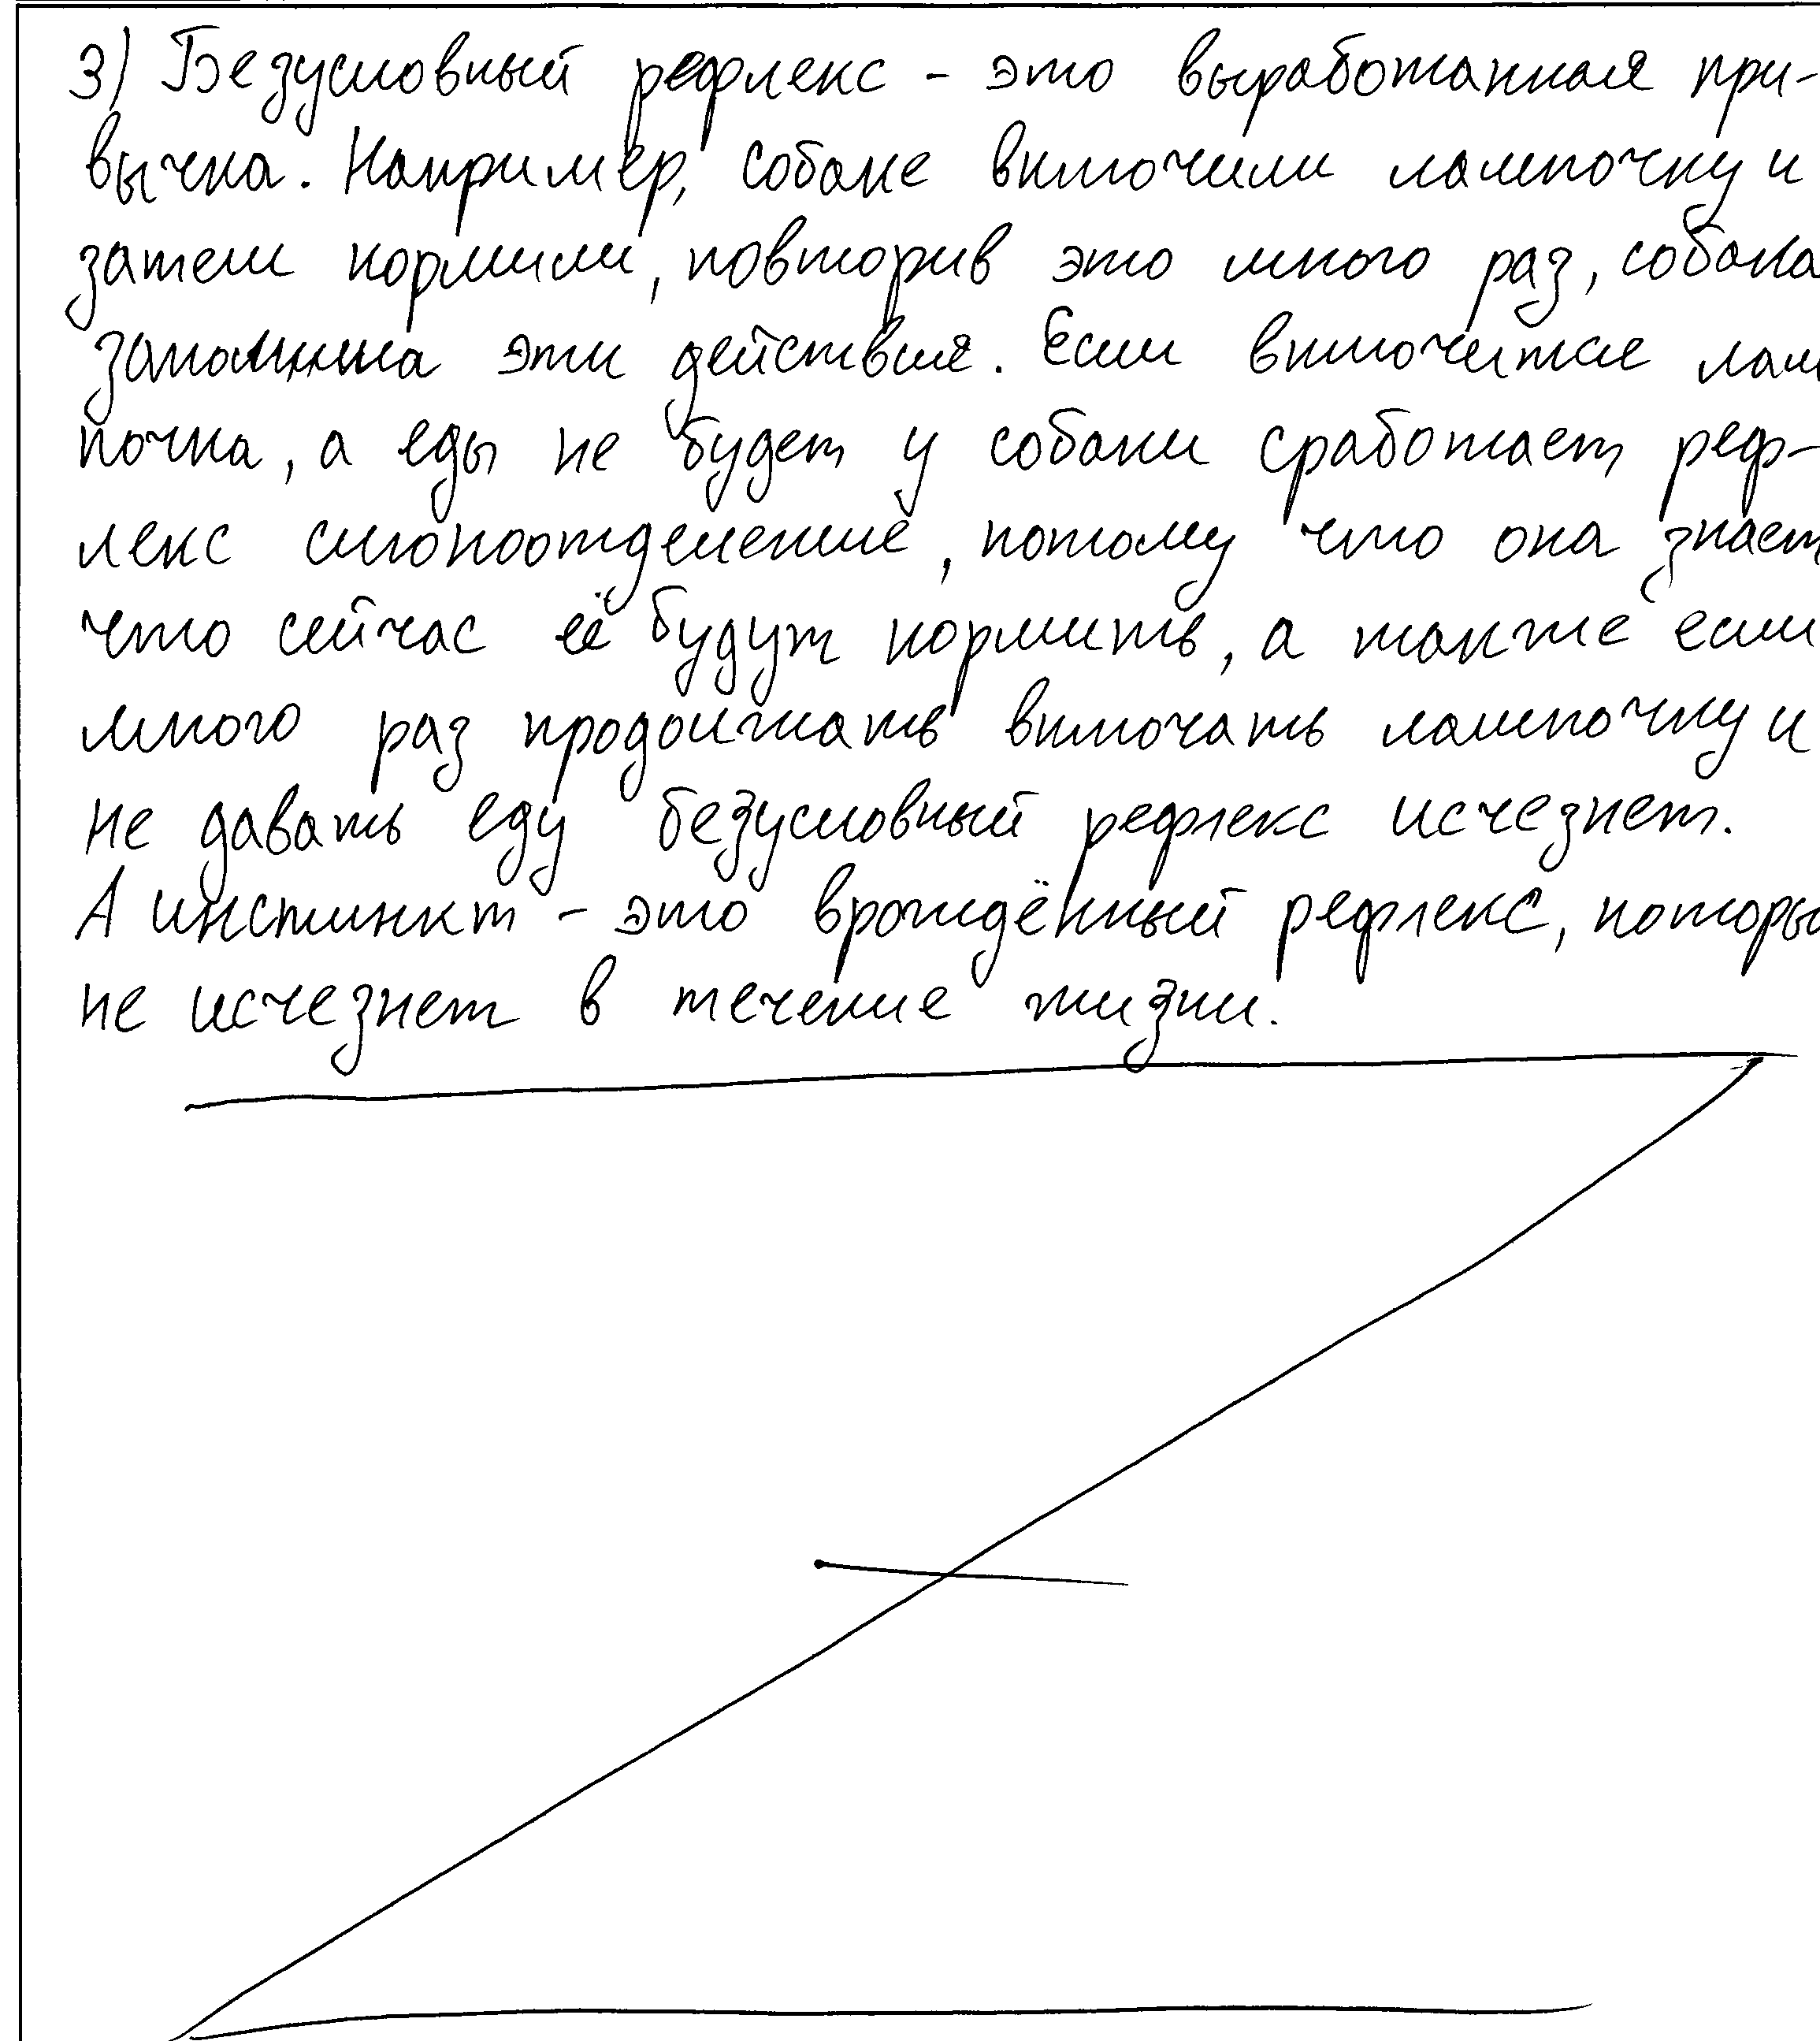 3) Безусловный рефлекс - это выработанная при-
вычка. Например, собаке включили лампочку и
затем кормили, повторив это много раз, собака
запомнила эти действия. Если включится лам
почка, а еды не будет у собаки сработает реф-
лекс слюноотделение, потому что она знает
что сейчас её будут кормить, а также если
много раз продолжать включать лампочку и
не давать еду безусловный рефлекс исчезнет.
А инстинкт - это врождённый рефлекс, которы
не исчезнет в течение жизни.